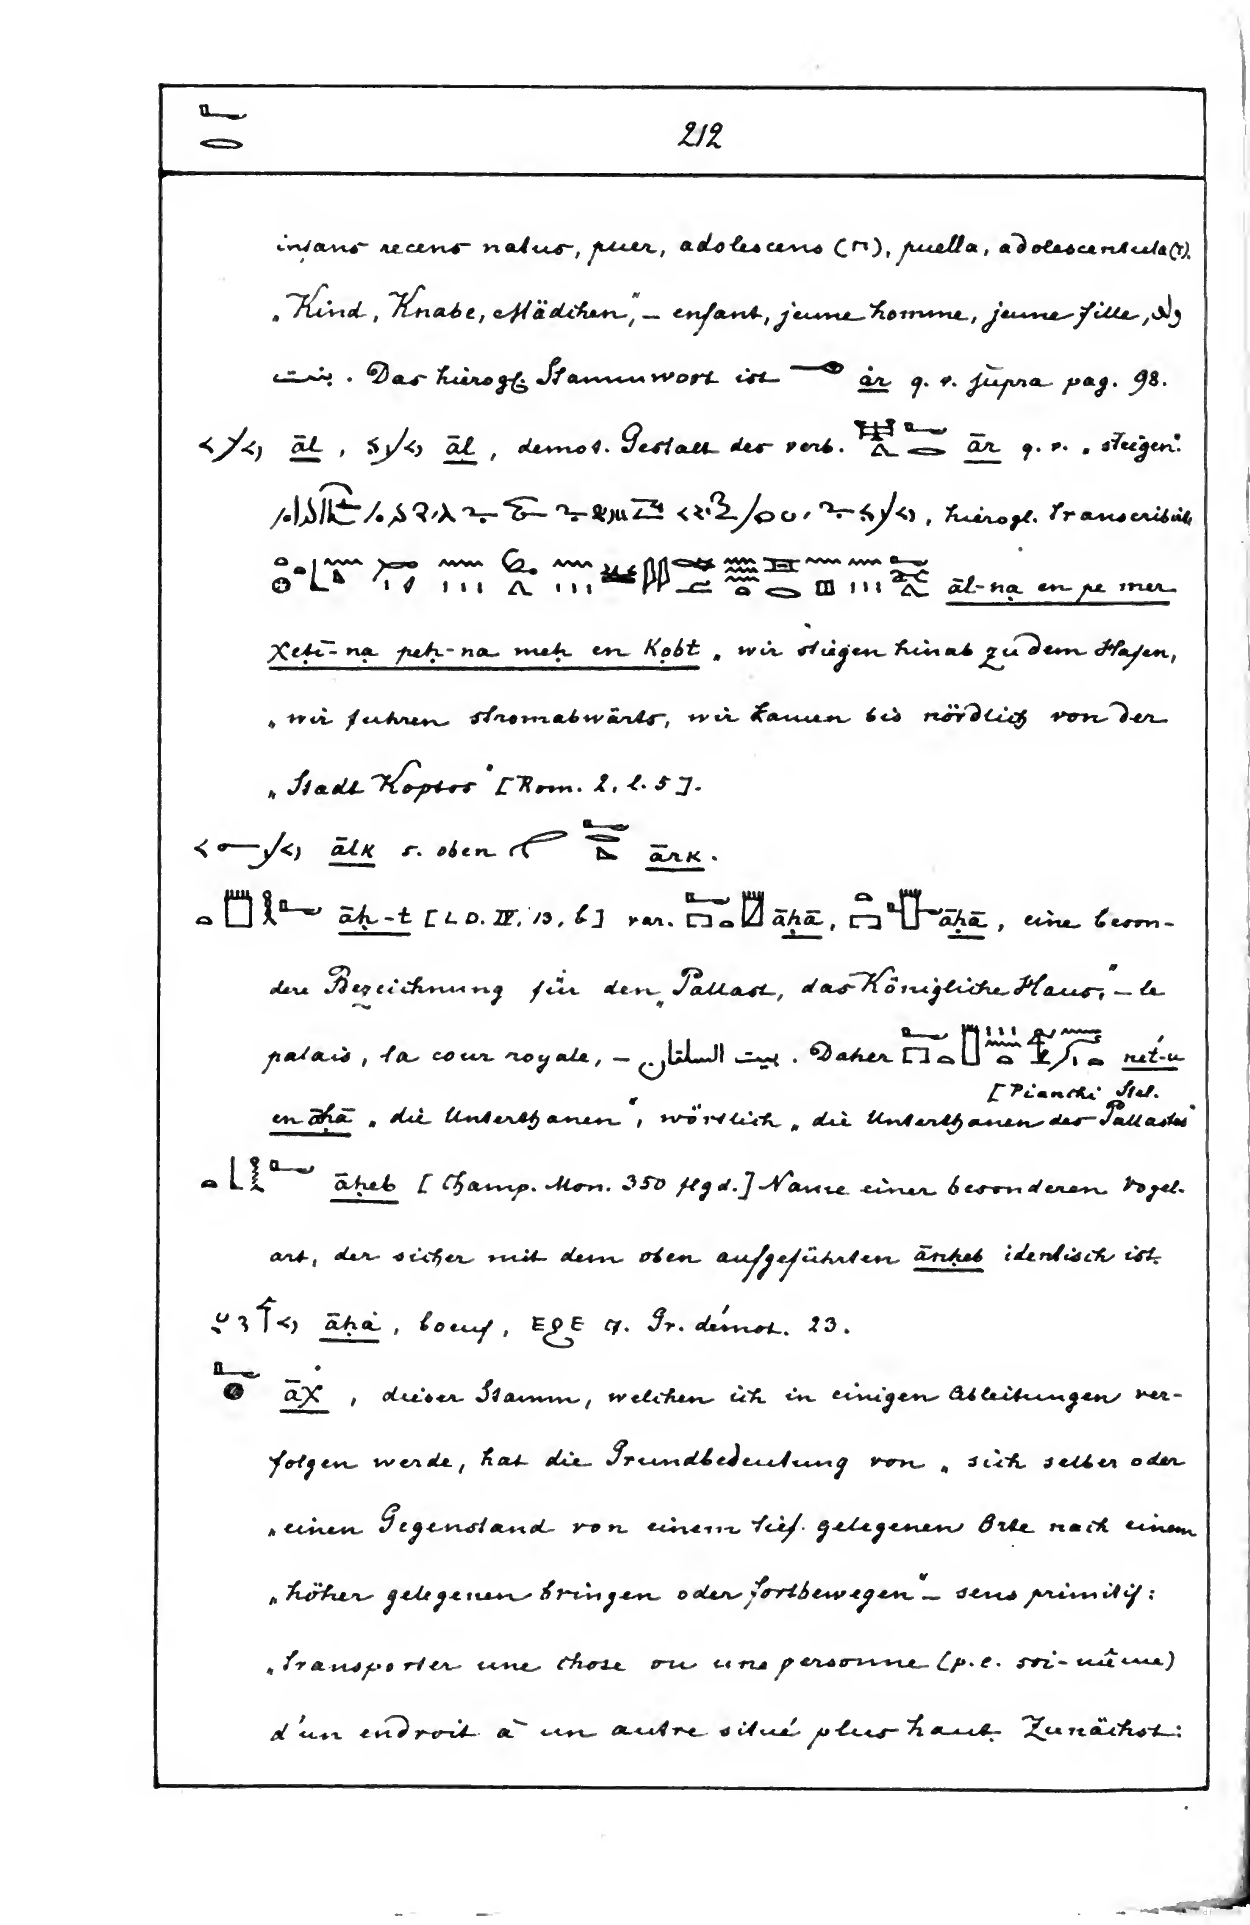 212
infans recens natus, puer, adolescens (m), puella, adolescentula (f).
„Kind, Knabe, Mädchen,“ – enfant, jeune homme, jeune fille, ولد
بنت. Das hierogl. Stammwort ist år q. v. supra pag. 98.
āl, āl, demot. Gestalt des verb. ār q. v. „steigen“:
, hierogl. transcribirt
āl-na en pe mer
χeti-na peḥ-na meḥ en Kobt „wir stiegen hinab zu dem Hafen,
„wir fuhren stromabwärts, wir kamen bis nördlich von der
„Stadt Koptos“ [Rom. 2, l. 5].
ālk s. oben ārk.
āḥ-t [LD. IV, 13, b] var. āḥā, āḥā, eine beson-
dere Bezeichnung für den „Pallast, das Königliche Haus,“ – le
palais, la cour royale, – بيت السلطان. Daher net-u
[Pianchi Stel.
en āḥā „die Unterthanen“, wörtlich „die Unterthanen des Pallastes“
āḥeb [Champ. Mon. 350 flgd.] Name einer besonderen Vogel-
art, der sicher mit dem oben aufgeführten ānḥeb identisch ist.
āḥå, boeuf, ⲉϩⲉ cf. Gr. démot. 23.
āχ, dieser Stamm, welchen ich in einigen Ableitungen ver-
folgen werde, hat die Grundbedeutung von „sich selber oder
„einen Gegenstand von einem tief gelegenen Orte nach einem
„höher gelegenen bringen oder fortbewegen“ – sens primitif:
„transporter une chose ou une personne (p. e. soi-même)
d'un endroit à un autre situé plus haut. Zunächst: